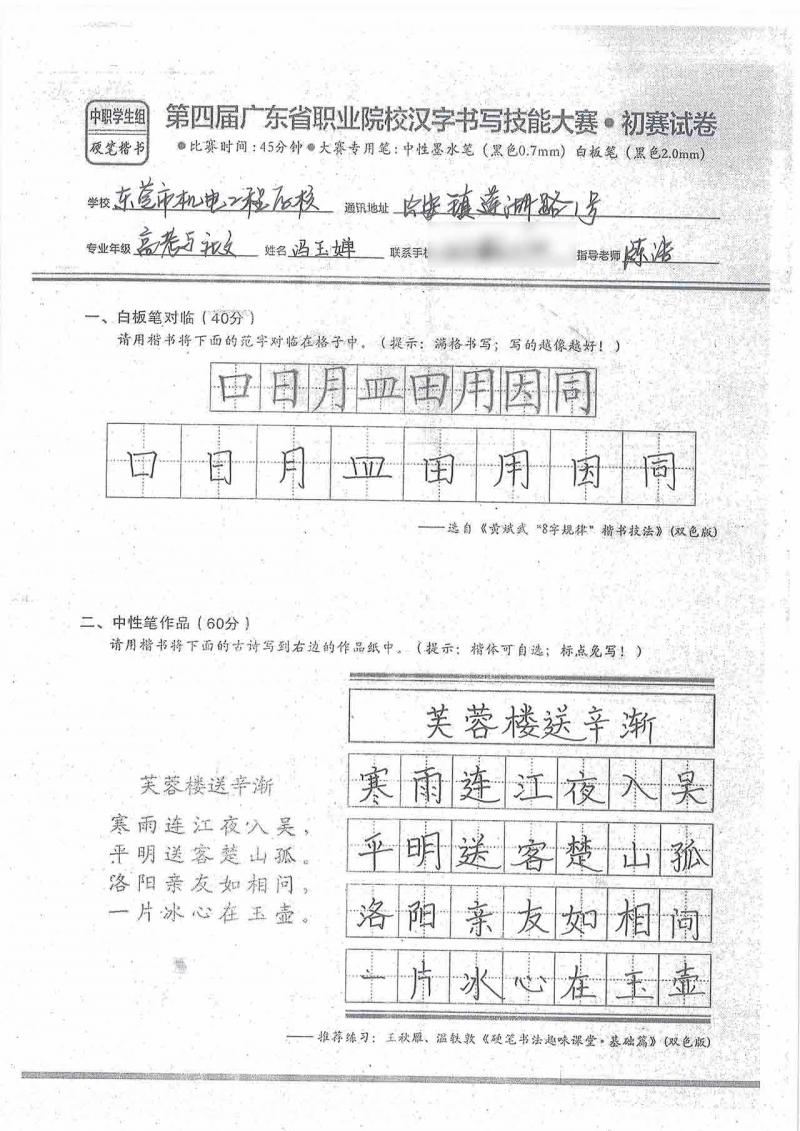 中职学生组
硬笔楷书
第四届广东省职业院校汉字书写技能大赛·初赛试卷
●比赛时间：45分钟●大赛专用笔：中性墨水笔（黑色0.7mm）白板笔（黑色2.0mm）
学校 东莞市机电工程学校 通讯地址 长安镇莲湖路1号
专业年级 姓名 冯玉婵 联系手机 指导老师 陈浩
一、白板笔对临（40分）
请用楷书将下面的范字对临在格子中。（提示：满格书写；写的越像越好！）
口日月皿田用因同
口日月皿田用因同
——选自《黄斌武“8字规律”楷书技法》(双色版)
二、中性笔作品（60分）
请用楷书将下面的古诗写到右边的作品纸中。（提示：楷体可自选；标点免写！）
芙蓉楼送辛渐
寒雨连江夜入吴，
平明送客楚山孤。
洛阳亲友如相问，
一片冰心在玉壶。
芙蓉楼送辛渐
寒雨连江夜入吴
平明送客楚山孤
洛阳亲友如相问
一片冰心在玉壶
——推荐练习：王秋雁、温轶敦《硬笔书法趣味课堂·基础篇》(双色版)